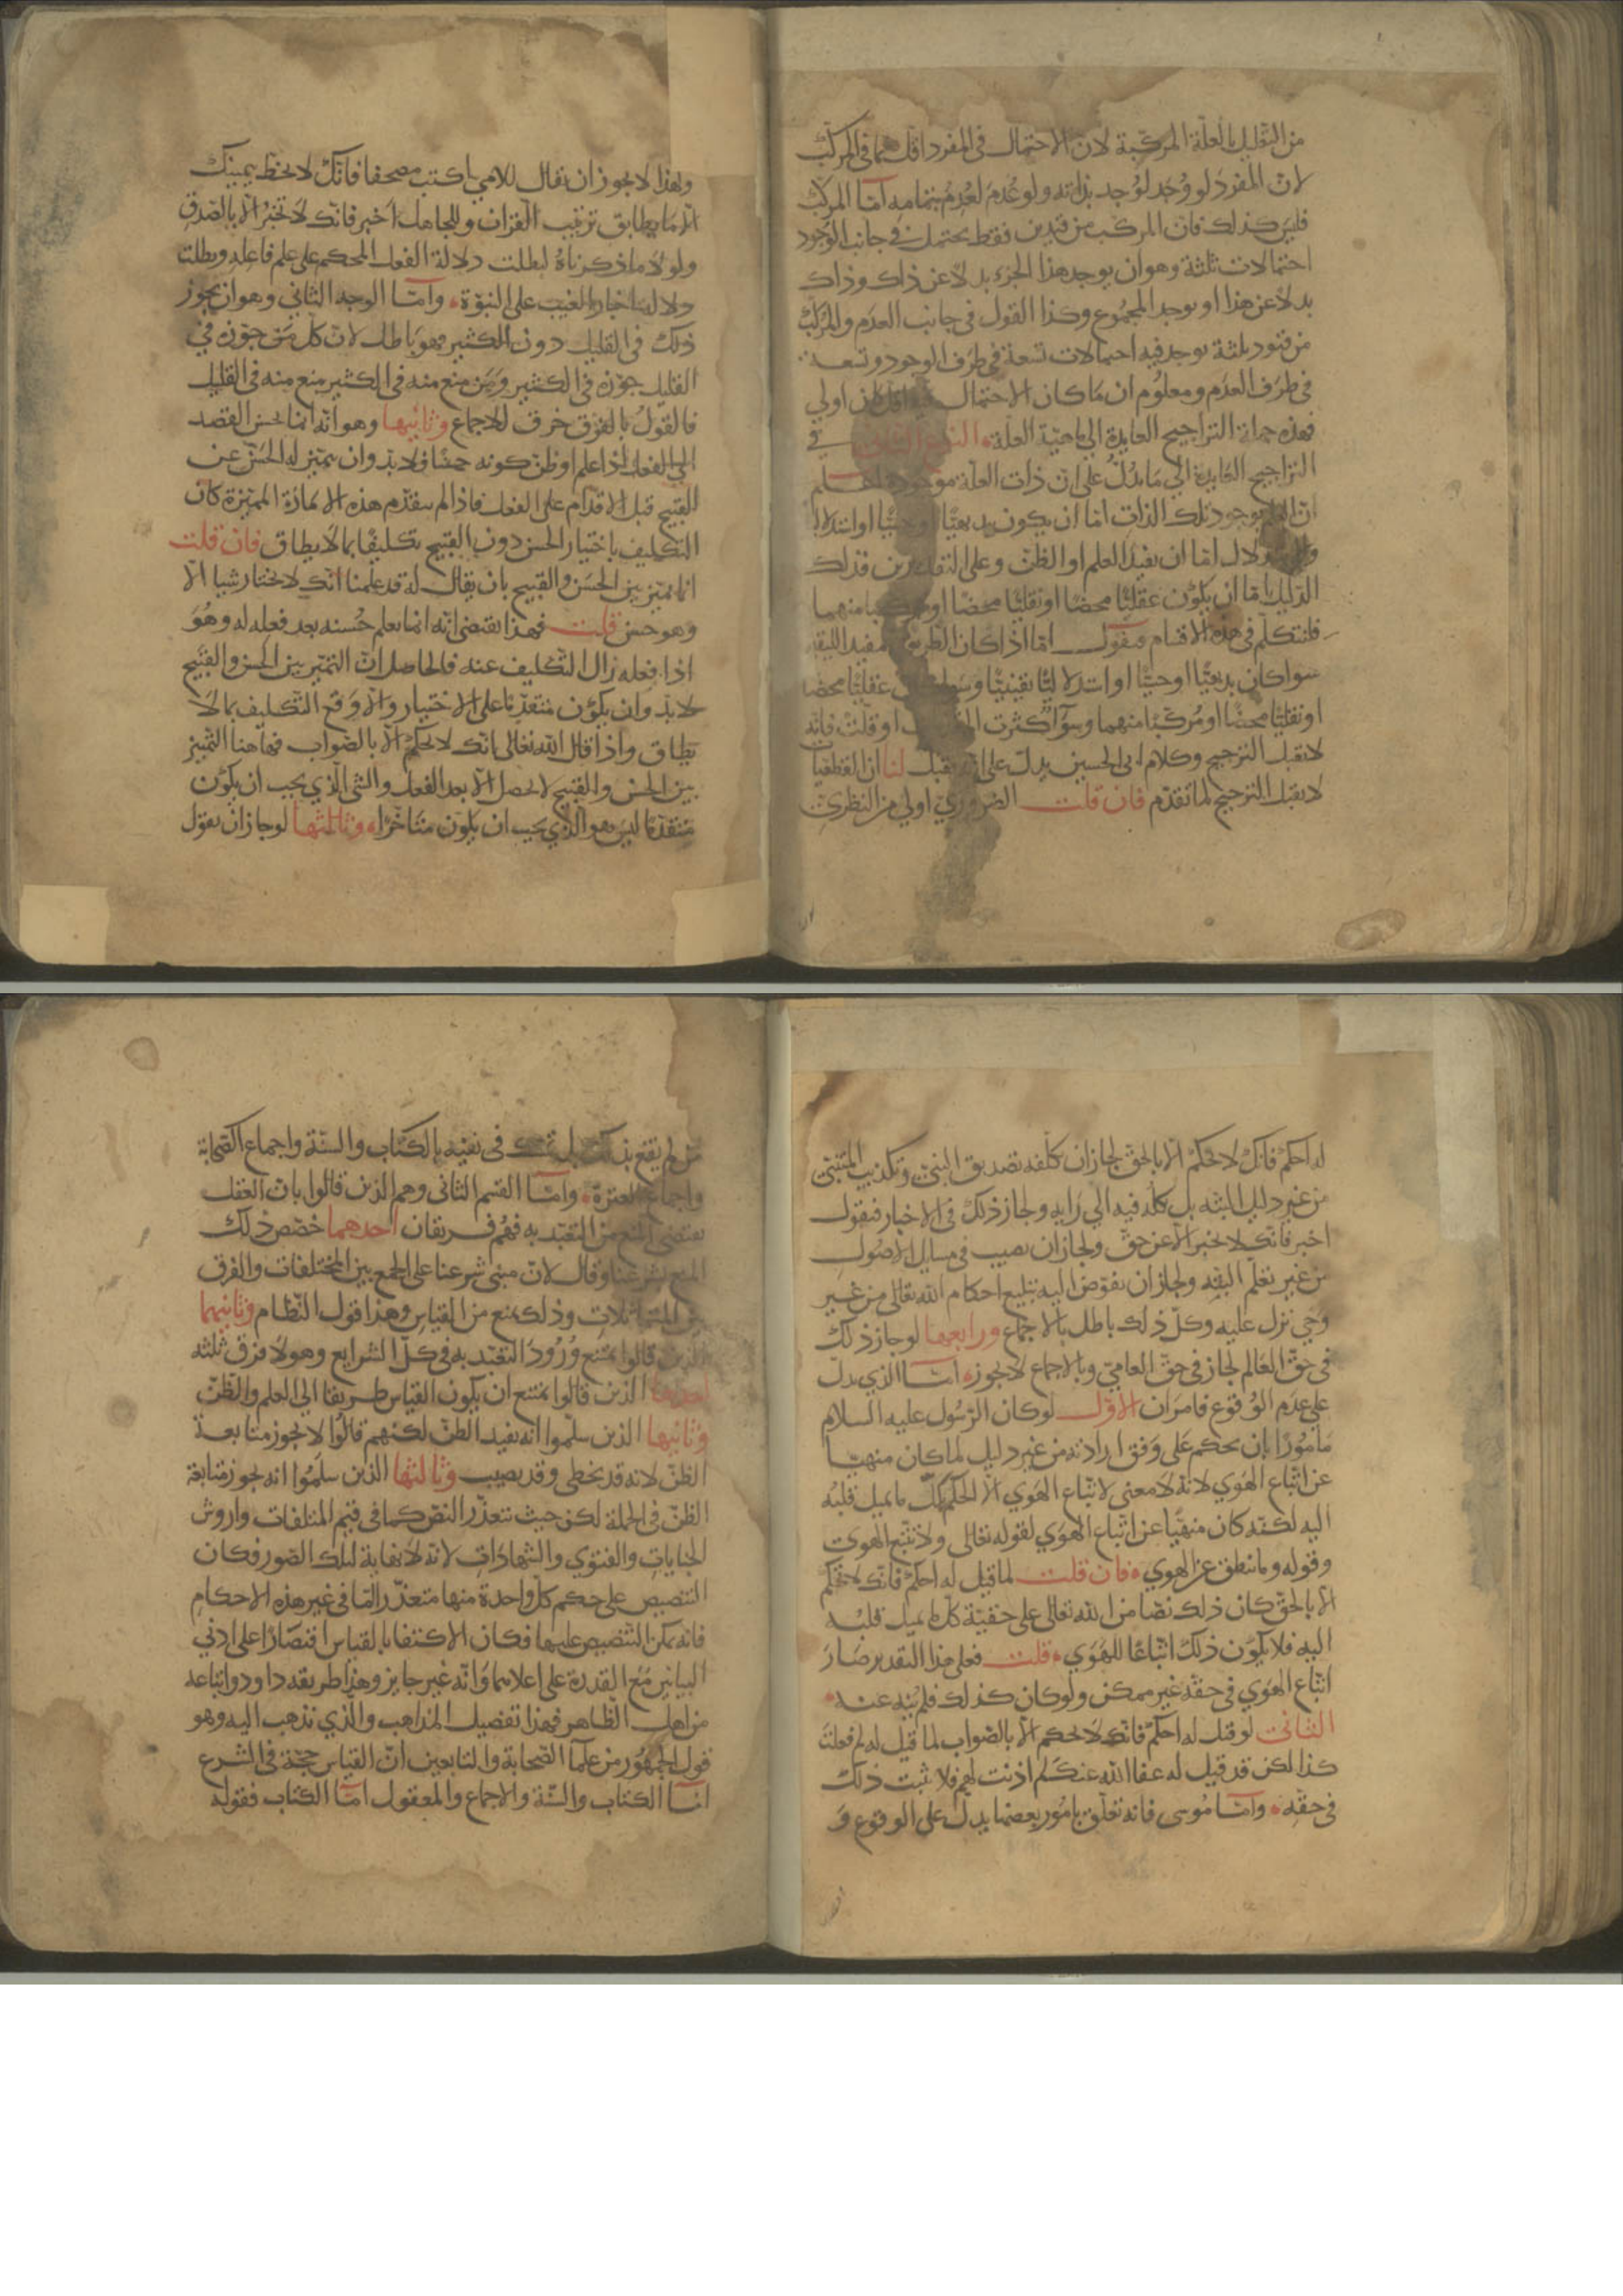 من التعليل بالعلة المركبة لان الاحتمال في المفرد اقل مما في المركب
لان المفرد لو وُجد لوُجد بذاته ولو عُدم لعُدم بتمامه امّا المركب
فليس كذلك فان المركب من قيدين فقط يحتمل في جانب الوجود
احتمالات ثلثة وهو ان يوجد هذا الجزء بدلا عن ذاك وذاك
بدلا عن هذا او يوجد المجموع وكذا القول في جانب العدم والمركب
من قيود ثلثة يوجد فيه احتمالات تسعة في طرف الوجود وتسعة
في طرف العدم ومعلوم ان ما كان الاحتمال فيه اقل كان اولي
فهذه جملة التراجيح العايدة الي ماهيّة العلة النوع الثاني في
التراجيح العايدة الي ما يدلّ علي ان ذات العلة موجودة اعلم
ان العلم بوجود تلك الذات امّا ان يكون بديهيّا او حسيّا او استدلاليا
والاستدلال امّا ان يفيد العلم او الظنّ وعلي التقديرين فذلك
الدليل امّا ان يكون عقليّا محضًا او نقليّا محضًا او مركبا منهما
فلنتكلم في هذه الاقسام فنقول امّا اذا كان الطريق مفيد اليقين
سوا كان بديهيّا او حسيّا او استدلاليّا يقينيّا وسوا كان عقليّا محضا
او نقليّا محضًا او مُركبًا منهما وسوآ كثرت المقدمات او قلت فانه
لا يقبل الترجيح وكلام ابي الحسين يدل علي انه يقبل لنا ان القطعيات
لا يقبل الترجيح لما تقدم فان قلت الضروريّ اولي من النظريّ
ولهذا لا يجوز ان يقال للامي اكتب مصحفا فانك لا تخط بيمينك
الا ما يطابق ترتيب القران وللجاهل اخبر فانك لا تخبر الا بالصدق
ولولا ما ذكرناه لبطلت دلالة الفعل المحكم علي علم فاعله وبطلت
دلالة اخبار الغيب علي النبوة وامّا الوجه الثاني وهو ان يجوز
ذلك في القليل دون الكثير فهو باطل لان كل من جوزه في
القليل جوزه في الكثير ومن منع منه في الكثير منع منه في القليل
فالقول بالفرق خرق للاجماع وثانيها وهو انه انما يحسن القصد
الي الفعل اذا علم او ظن كونه حسنا فلا بد وان يتميز له الحسن عن
القبيح قبل الاقدام علي الفعل فاذا لم يتقدم هذه الامارة المميزة كان
التكليف باختيار الحسن دون القبيح تكليفًا بما لا يطاق فان قلت
انما يميز بين الحسن والقبيح بان يقال له قد علمنا انك لا تختار شيا الا
وهو حسن قلت فهذا يقتضي انه انما يعلم حُسنه بعد فعله له وهُوَ
اذا فعله زال التكليف عنه فالحاصل ان التمييز بين الحسن والقبيح
لا بد وان يكون متقدّما علي الاختيار والا وقع التكليف بما لا
يطاق واذا قال الله تعالى بانك لا تحكم الا بالصواب فهاهنا التمييز
بين الحسن والقبيح لا يحصل الا بعد الفعل والشي الذي يجب ان يكون
متقدّما ليس هو الذي يجب ان يكون متاخرا وثالثها لو جاز ان يقول
له احكم فانك لا تحكم الا بالحق لجاز ان كلفه تصديق النبيّ وتكذيب المتنبّي
من غير دليل البتّه بل يكله فيه الي رايه ولجاز ذلك في الاخبار فيقول
اخبر فانك لا تخبر الا عن حقّ ولجاز ان يصيب في مسايل الاصُول
من غير تعلّم البتّه ولجاز ان يفوّض اليه تبليغ احكام الله تعالى من غير
وحي نزل عليه وكلّ ذلك باطل بالاجماع ورابعها لو جاز ذلك
في حقّ العالم لجاز في حقّ العاميّ وبالاجماع لا يجوز امّا الذي يدلّ
علي عدم الوقوع فامران الاوّل لو كان الرّسُول عليه السلام
مامُورًا بان يحكم علي وفق ارادته من غير دليل لما كان منهيّا
عن اتّباع الهوي لانّه لا معني لاتّباع الهوي الا الحكم بكلّ ما يميل قلبُه
اليه لكنّه كان منهيّا عن اتّباع الهوَي لقوله تعالى ولا تتّبع الهوي
وقوله وما ينطق عن الهوي فان قلت لما قيل له احكم فانك لا تحكم
الا بالحقّ كان ذلك نصّا من الله تعالى علي حقيّة كلّ ما يميل قلبُه
اليه فلا يكون ذلك اتّباعًا للهوَي قلت فعلي هذا التقدير صَارَ
اتّباع الهوَي في حقّه غير ممكن ولو كان كذلك فلم نُهِيَ عنه
الثاني لو قيل له احكم فانك لا تحكم الا بالصّواب لما قيل له لم فعلتَ
كذا لكن قد قيل له عفا الله عنك لم اذنت لهم فلا يثبت ذلك
في حقّه وامّا مُوسي فانه تعلّق بامُور بعضها يدل علي الوقوع و
من لم يقنع بذلك بل تمسك في نفيه بالكتاب والسنّة واجماع الصّحابة
واجماع العترة وامّا القسم الثاني وهم الذين قالوا بان العقل
يقتضي المنع من التعبّد به فهُم فريقان احدهما خصّص ذلك
المنع بشرعنا وقال لانّ مبني شرعنا علي الجمع بين المختلفات والفرق
بين المتماثلات وذلك يمنع من القياس وهذا قول النظّام وثانيهما
الذين قالوا يمتنع وُرُودَ التعبّد به في كلّ الشرايع وهولا فرق ثلثه
احدها الذين قالوا يمتنع ان يكون القياس طريقا الي العلم والظّن
وثانيها الذين سلّموا انه يفيد الظن لكنهم قالُوا لا يجوز متابعة
الظنّ لانه قد يخطي وقد يصيب وثالثها الذين سلّمُوا انه يجوز متابعة
الظنّ في الجملة لكن حيث تتعذّر النصّ كما في قيم المتلفات واروش
الجنايات والفتوي والشهادات لانه لا نهاية لتلك الصّور فكان
التنصيص علي حكم كلّ واحدة منها متعذّرا امّا في غير هذه الاحكام
فانه يمكن التنصيص عليها فكان الاكتفا بالقياس اقتصارًا علي ادني
البيانين مع القدرة علي اعلاهما وانّه غير جايز وهذا طريقه داود واتباعه
من اهل الظّاهر فهذا تفصيل المذاهب والّذي نذهب اليه وهو
قول الجمهُور من علمآ الصّحابة والتابعين انّ القياس حجّة في الشرع
لنا الكتاب والسنّة والاجماع والمعقول امّا الكتاب فقوله